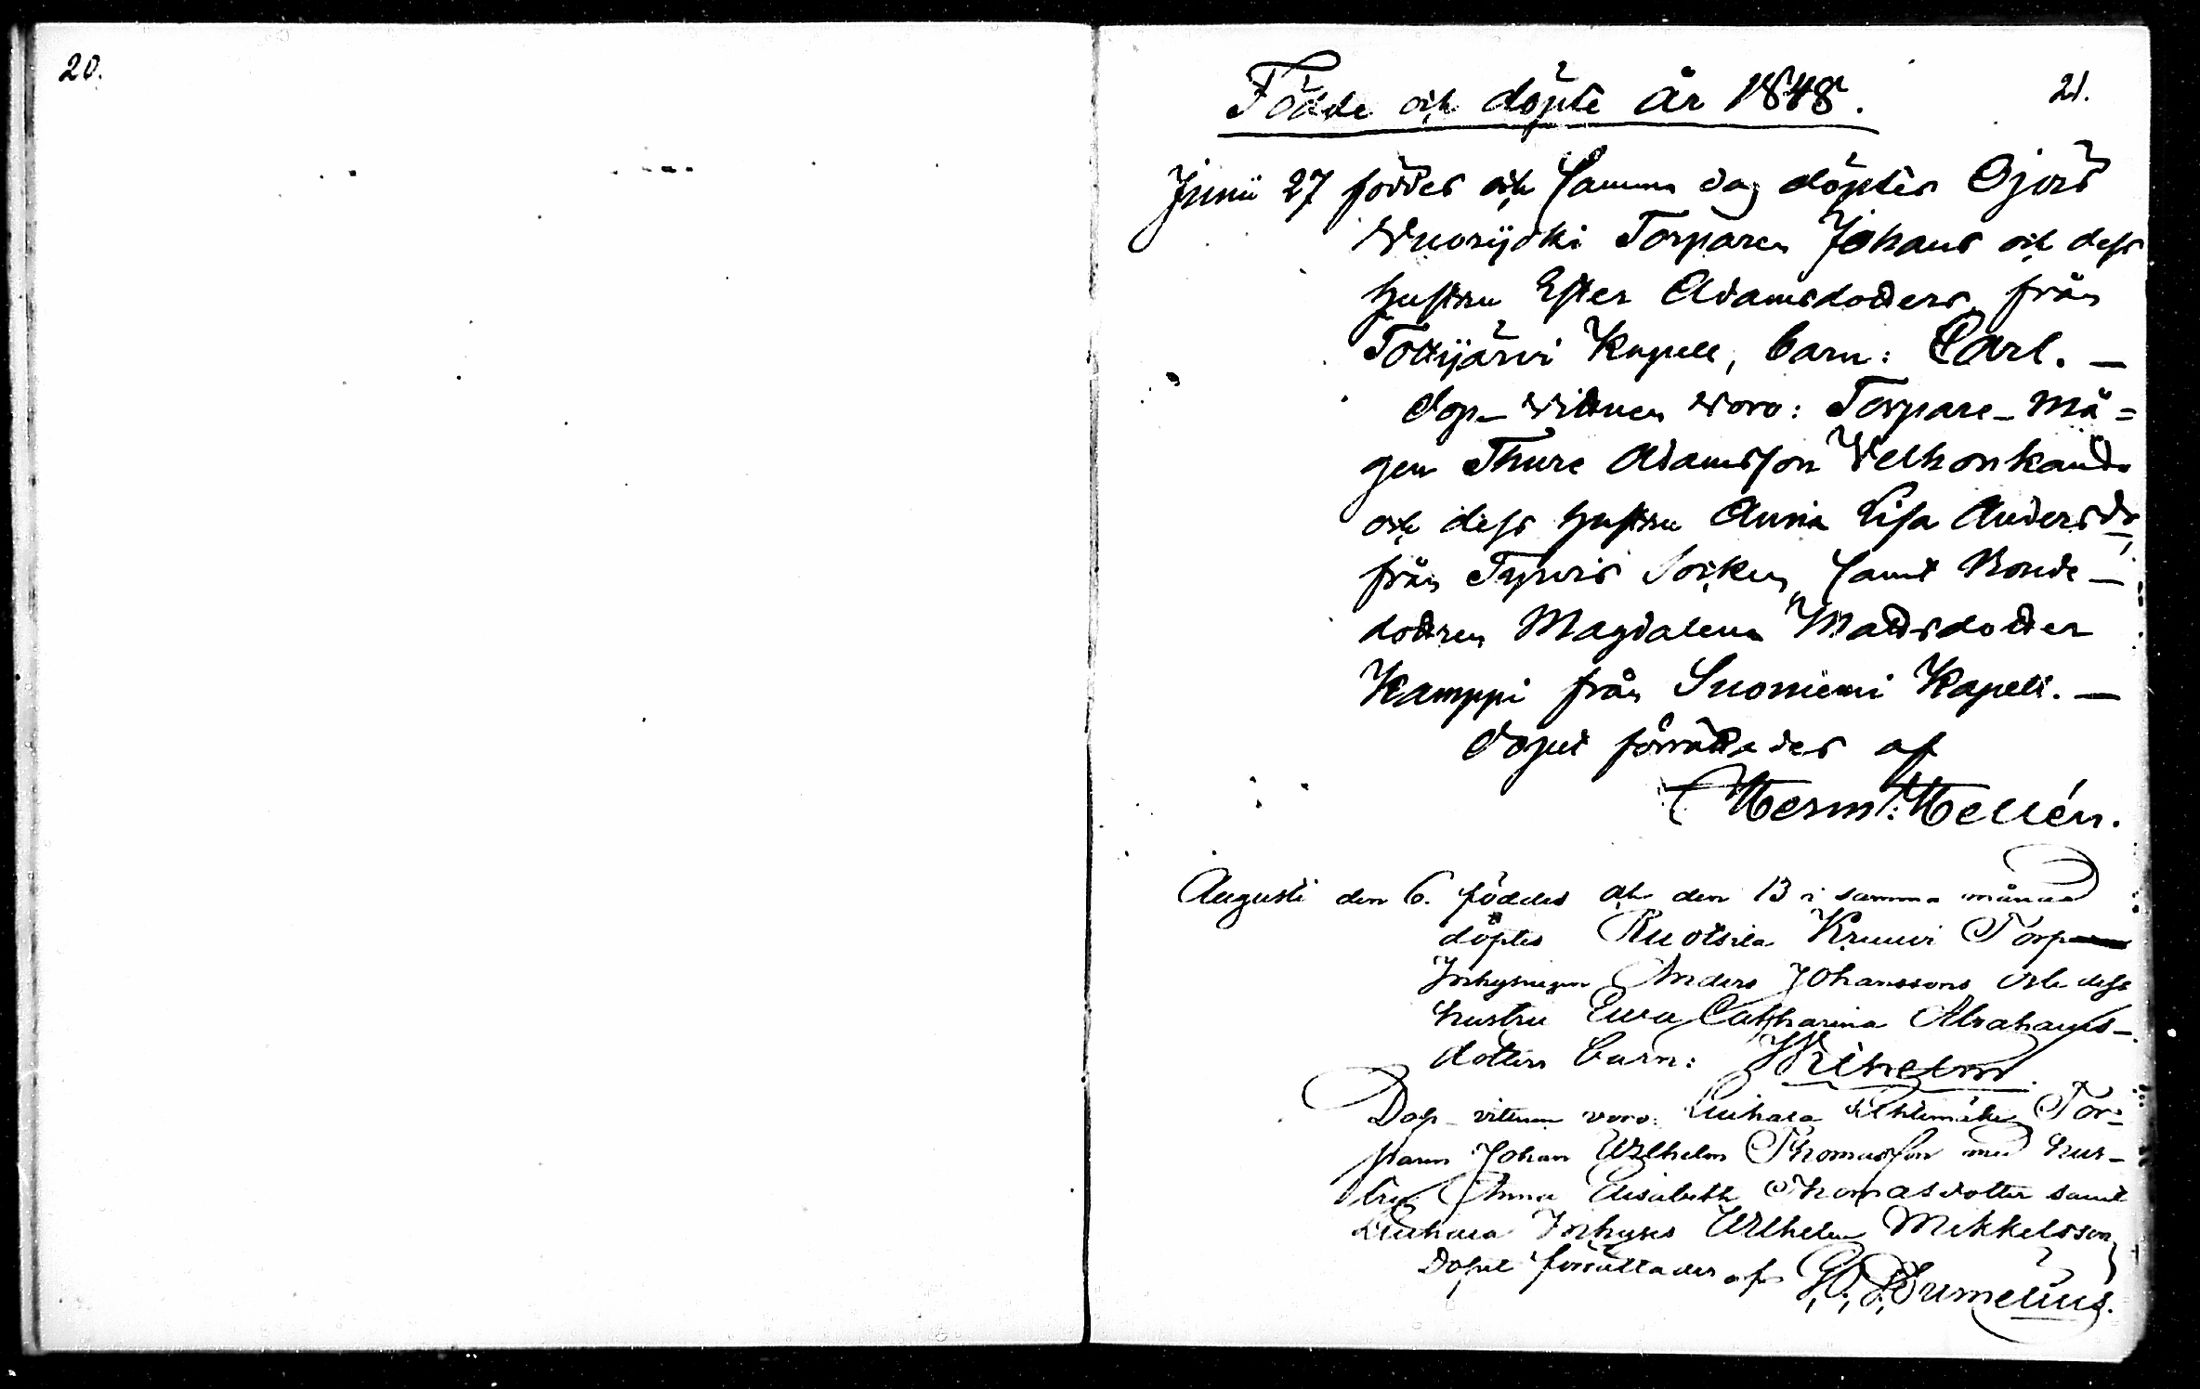 20.
21.
Födde och döpte år 1848.
Junii 27 föddes och samma dag döptes Gjers
Wuorijoki Torparen Johans och dess
hustru Ester Adamsdotters, från
Tottijärvi Kapell, barn: Carl. —
Dop-Vittnen Woro: Torpare-Må=
gen Thure Adamsson Velhonkandö
och dess hustru Anna Lisa Andersdr,
från Tyrvis Socken, samt Bonde-
dottren Magdalena Mattsdotter
Kamppi från Suoniemi Kapell. —
Dopet förrättades af
Herm: Hellén.
Augusti den 6. föddes och den 13 i samma månad
döptes Ruotsila Kruuvi Torp
Inhysingen Anders Johanssons och dess
hustru Ewa Catharina Abrahams-
dotters barn: Wilhelm.
Dop-vittnen voro: Luihala Torp-
paren Johan Wilhelm Thomasson med hus-
tru Anna Elisabeth Thomasdotter samt
Luihala Inhyses Wilhelm Mikkelsson
Dopet förrättades af